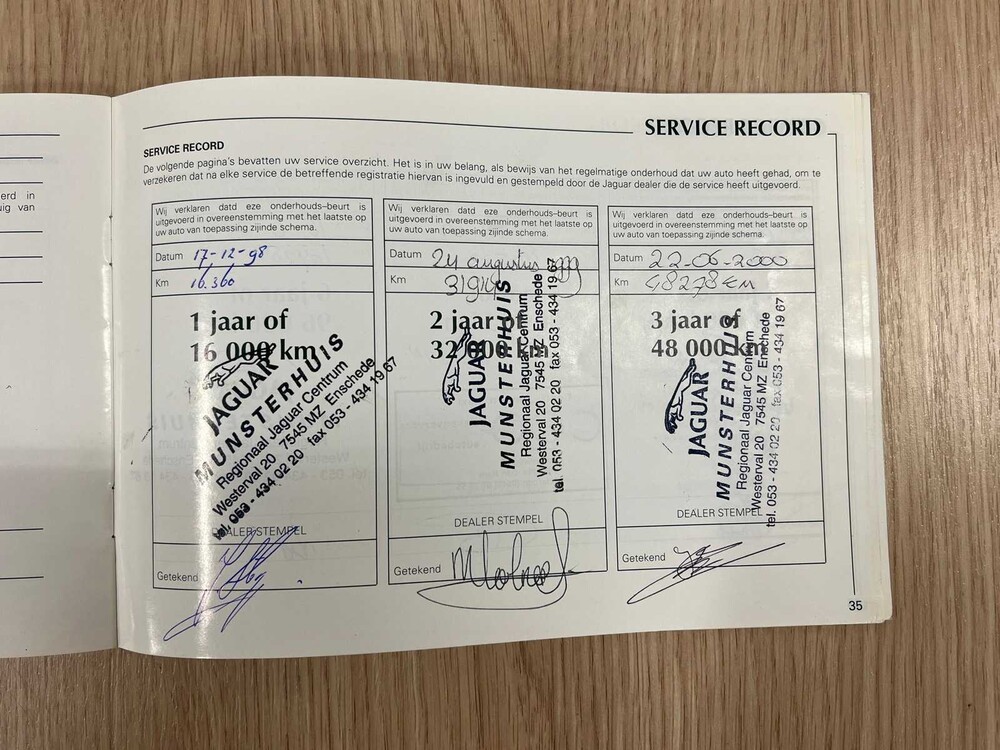 erd in
uig van
SERVICE RECORD
SERVICE RECORD
De volgende pagina's bevatten uw service overzicht. Het is in uw belang, als bewijs van het regelmatige onderhoud dat uw auto heeft gehad, om te
verzekeren dat na elke service de betreffende registratie hiervan is ingevuld en gestempeld door de Jaguar dealer die de service heeft uitgevoerd.
Wij verklaren datd eze onderhouds–beurt is
uitgevoerd in overeenstemming met het laatste op
uw auto van toepassing zijinde schema.
Datum 17-12-98
Km 16.360
1 jaar of
16 000 km
JAGUAR
MUNSTERHUIS
Regionaal Jaguar Centrum
Westerval 20 7545 MZ Enschede
tel. 053 - 434 02 20 fax 053 - 434 19 67
DEALER STEMPEL
Getekend
Wij verklaren datd eze onderhouds–beurt is
uitgevoerd in overeenstemming met het laatste op
uw auto van toepassing zijinde schema.
Datum 24 augustus
Km
2 jaar of
32 000 km
JAGUAR
MUNSTERHUIS
Regionaal Jaguar Centrum
Westerval 20 7545 MZ Enschede
tel. 053 - 434 02 20 fax 053 - 434 19 67
DEALER STEMPEL
Getekend
Wij verklaren datd eze onderhouds–beurt is
uitgevoerd in overeenstemming met het laatste op
uw auto van toepassing zijinde schema.
Datum 22-06-2000
Km 48278 KM
3 jaar of
48 000 km
JAGUAR
MUNSTERHUIS
Regionaal Jaguar Centrum
Westerval 20 7545 MZ Enschede
tel. 053 - 434 02 20 fax 053 - 434 19 67
DEALER STEMPEL
Getekend
35